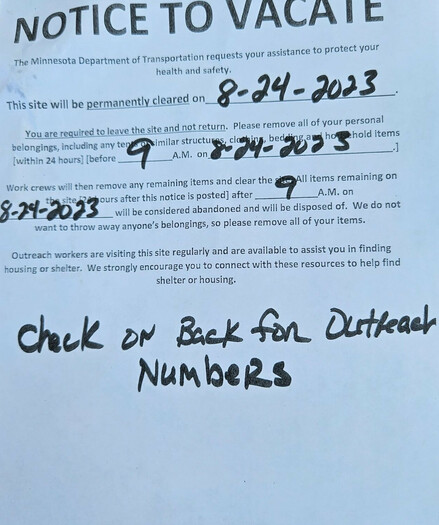 NOTICE TO VACATE
The Minnesota Department of Transportation requests your assistance to protect your
health and safety.
This site will be permanently cleared on 8-24-2023.
You are required to leave the site and not return. Please remove all of your personal
belongings, including any similar structures, clothing, bedding and household items
[within 24 hours] [before 9 A.M. on 8-24-2023.]
Work crews will then remove any remaining items and clear the site. All items remaining on
the site hours after this notice is posted] after 9 A.M. on
8-24-2023 will be considered abandoned and will be disposed of. We do not
want to throw away anyone's belongings, so please remove all of your items.
Outreach workers are visiting this site regularly and are available to assist you in finding
housing or shelter. We strongly encourage you to connect with these resources to help find
shelter or housing.
Check on Back for Outreach
Numbers